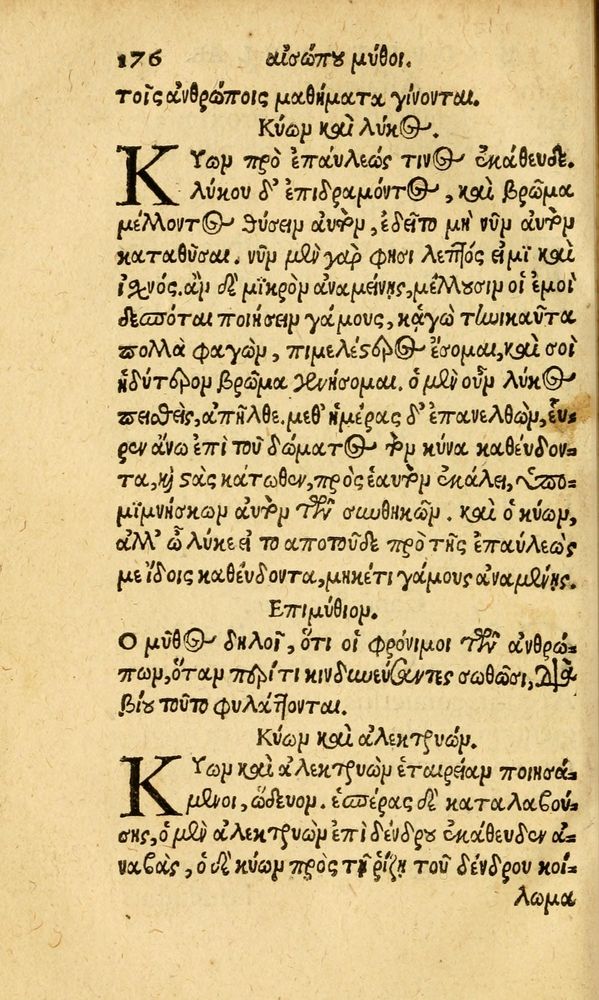 176 αἰσώπου μῦθοι.
τοῖς ἀνθρώποις μαθήματα γίνονται.
Κύων καὶ λύκος.
Κύων πρὸ ἐπαύλεώς τινος ἐκάθευδε.
λύκου δ' ἐπιδραμόντος, καὶ βρῶμα
μέλλοντος θύσειν αὐτὸν, ἐδεῖτο μὴ νῦν αὐτὸν
καταθῦσαι. νῦν μὲν γάρ φησι λεπτός εἰμὶ καὶ
ἰχνός. ἂν δὲ μικρὸν ἀναμείνῃς, μέλλουσιν οἱ ἐμοὶ
δεσπόται ποιήσειν γάμους, κἀγὼ τηνικαῦτα
πολλὰ φαγὼν, πιμελέστερος ἔσομαι, καὶ σοὶ
ἡδύτερον βρῶμα γενήσομαι. ὁ μὲν οὖν λύκος
πεισθεὶς, ἀπῆλθε. μεθ' ἡμέρας δ' ἐπανελθὼν, εὗ-
ρεν ἄνω ἐπὶ τοῦ δώματος τὸν κύνα καθεύδον-
τα, καὶ στὰς κάτωθεν, πρὸς ἑαυτὸν ἐκάλει, ὑπο-
μιμνήσκων αὐτὸν τῶν συνθηκῶν. καὶ ὁ κύων,
ἀλλ' ὦ λύκε εἰ τὸ ἀπὸ τοῦδε πρὸ τῆς ἐπαύλεώς
με ἴδοις καθεύδοντα, μηκέτι γάμους ἀναμένῃς.
Ἐπιμύθιον.
Ὁ μῦθος δηλοῖ, ὅτι οἱ φρόνιμοι τῶν ἀνθρώ-
πων, ὅταν περί τι κινδυνεύσαντες σωθῶσι, διὰ
βίου τοῦτο φυλάττονται.
Κύων καὶ ἀλεκτρυών.
Κύων καὶ ἀλεκτρυὼν ἑταιρείαν ποιησά-
μενοι, ὥδευον. ἑσπέρας δὲ καταλαβού-
σης, ὁ μὲν ἀλεκτρυὼν ἐπὶ δένδρου ἐκάθευδεν ἀ-
ναβὰς, ὁ δὲ κύων πρὸς τῇ ῥίζῃ τοῦ δένδρου κοί-
λωμα